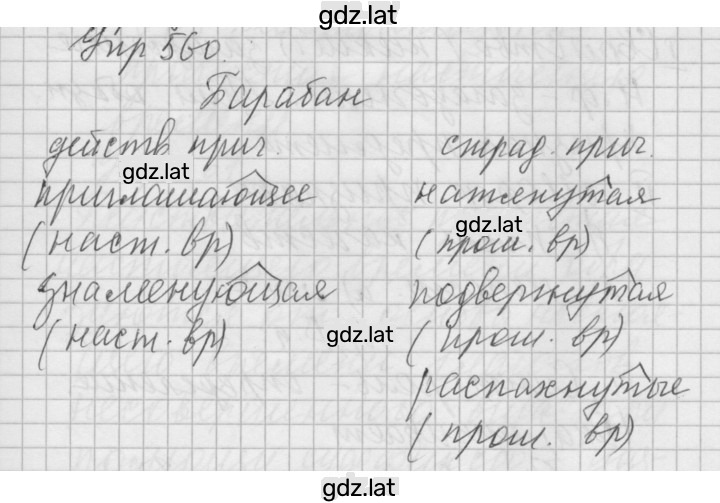 gdz.lat
Упр 560.
Барабан
действ прич. страд. прич.
gdz.lat
приглашающее натянутая
gdz.lat
(наст. вр) (прош. вр)
знаменующая подвергнутая
gdz.lat
(наст. вр) (прош. вр)
распахнутые
(прош. вр)
gdz.lat